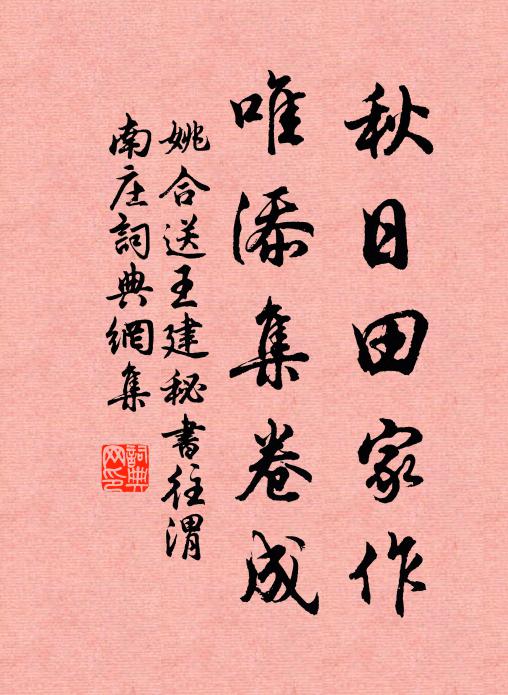 秋日田家作
唯添集卷成
姚合送王建秘書往渭
南庄詞典網集
詞典
网印